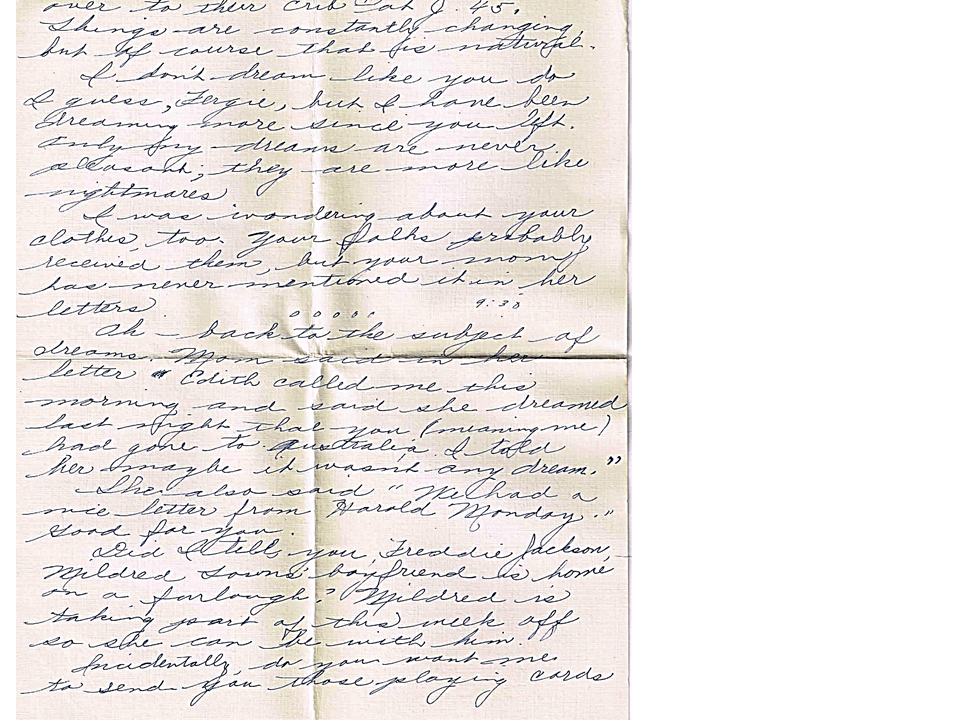 over to their crib at J. 45.
Things are constantly changing
but of course that is natural.
I don't dream like you do
I guess, Fergie, but I have been
dreaming more since you left.
Only my dreams are never
pleasant; they are more like
nightmares
I was wondering about your
clothes, too. Your folks probably
received them, but your mom
has never mentioned it in her
letters.
9:30
Oh - back to the subject of
dreams. Mom said in her
letter " Edith called me this
morning and said she dreamed
last night that you (meaning me)
had gone to Australia. I told
her maybe it wasn't any dream."
She also said "We had a
nice letter from Harold Monday."
Good for you.
Did I tell you, Freddie Jackson,
Mildred Towns' boyfriend is home
on a furlough? Mildred is
taking part of this week off
so she can be with him.
Incidentally, do you want me
to send you those playing cards